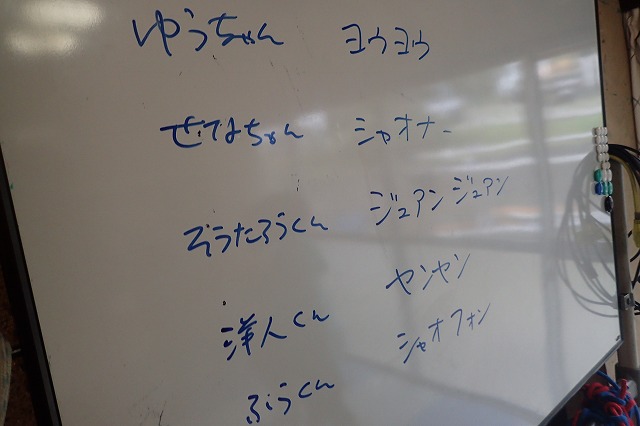 ゆうちゃん ヨウヨウ
ぜなちゃん シャオナー
ぞうたろうくん ジュアンジュアン
洋人くん ヤンヤン
ふうくん シャオフォン